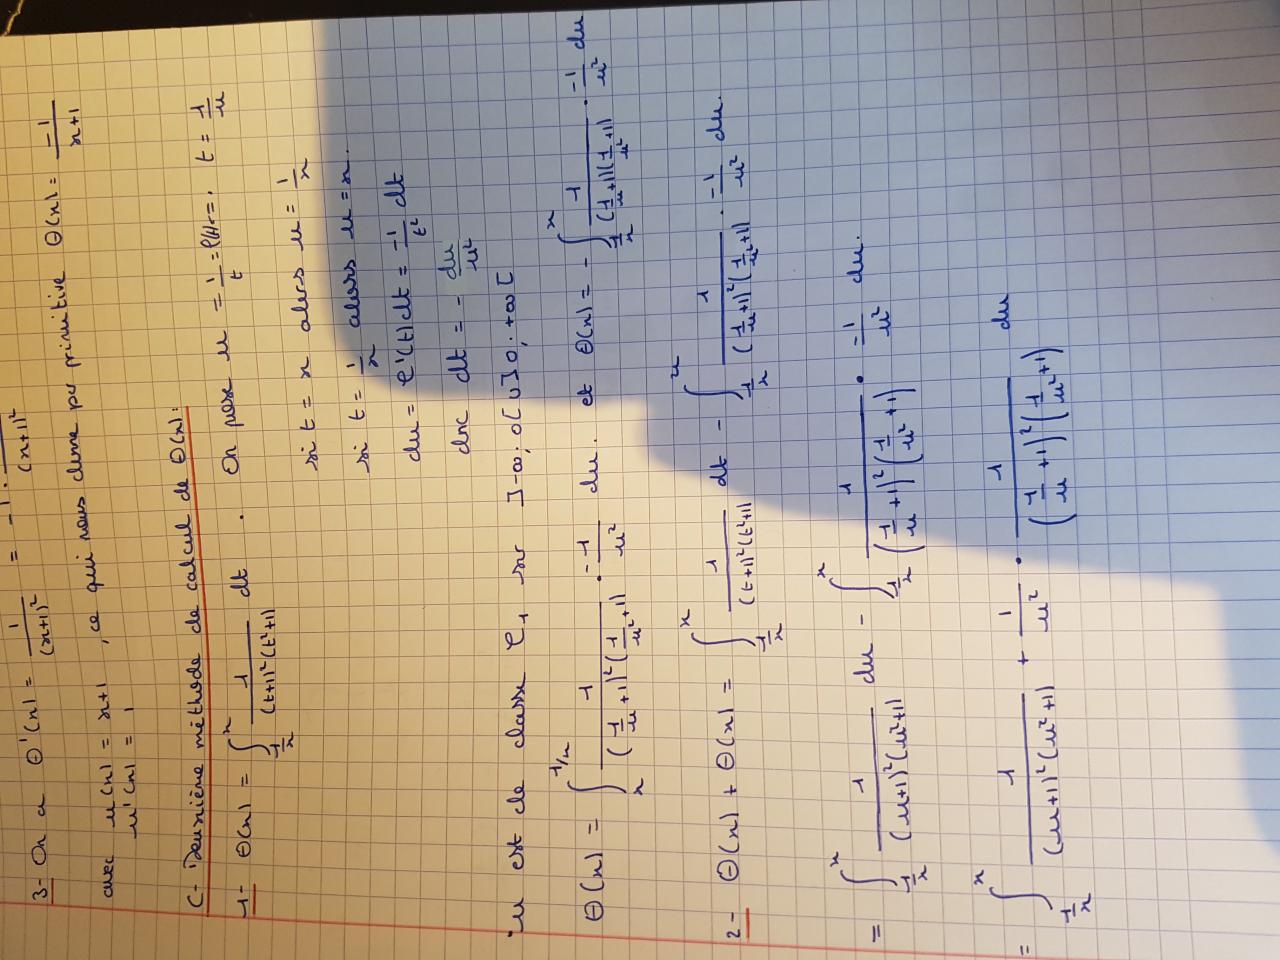 3- On a θ'(x) = 1/(x+1)² = -1 · -1/(x+1)²
avec u(x) = x+1 , ce qui nous donne par primitive θ(x) = -1/(x+1)
u'(x) = 1
C- Deuxième méthode de calcul de θ(x):
1- θ(x) = ∫_{1/x}^{x} 1/((t+1)²(t²+1)) dt . On pose u = 1/t = t = 1/u
si t = x alors u = 1/x
si t = 1/x alors u = x.
du = e'(t)dt = -1/t² dt
donc dt = - du/u²
u est de classe C₁ sur ]-∞; 0[ U ]0; +∞[
θ(x) = ∫_{x}^{1/x} 1/((1/u +1)²(1/u² +1)) · -1/u² du. et θ(x) = - ∫_{1/x}^{x} 1/((1/u +1)(1/u² +1)) · -1/u² du
2- θ(x) + θ(x) = ∫_{1/x}^{x} 1/((t+1)²(t²+1)) dt - ∫_{1/x}^{x} 1/((1/u +1)²(1/u² +1)) · -1/u² du.
= ∫_{1/x}^{x} 1/((u+1)²(u²+1)) du - ∫_{1/x}^{x} 1/((1/u +1)²(1/u² +1)) · -1/u² du.
= ∫_{1/x}^{x} 1/((u+1)²(u²+1)) + 1/u² · 1/((1/u +1)²(1/u² +1)) du